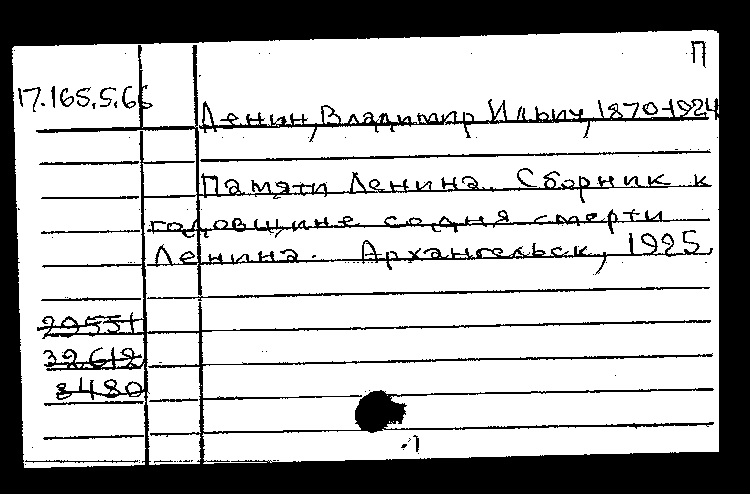 П
17.165.5.66
Ленин, Владимир Ильич, 1870-1924
Памяти Ленина. Сборник к
годовщине со дня смерти
Ленина. Архангельск, 1925.
29551
32612
3480